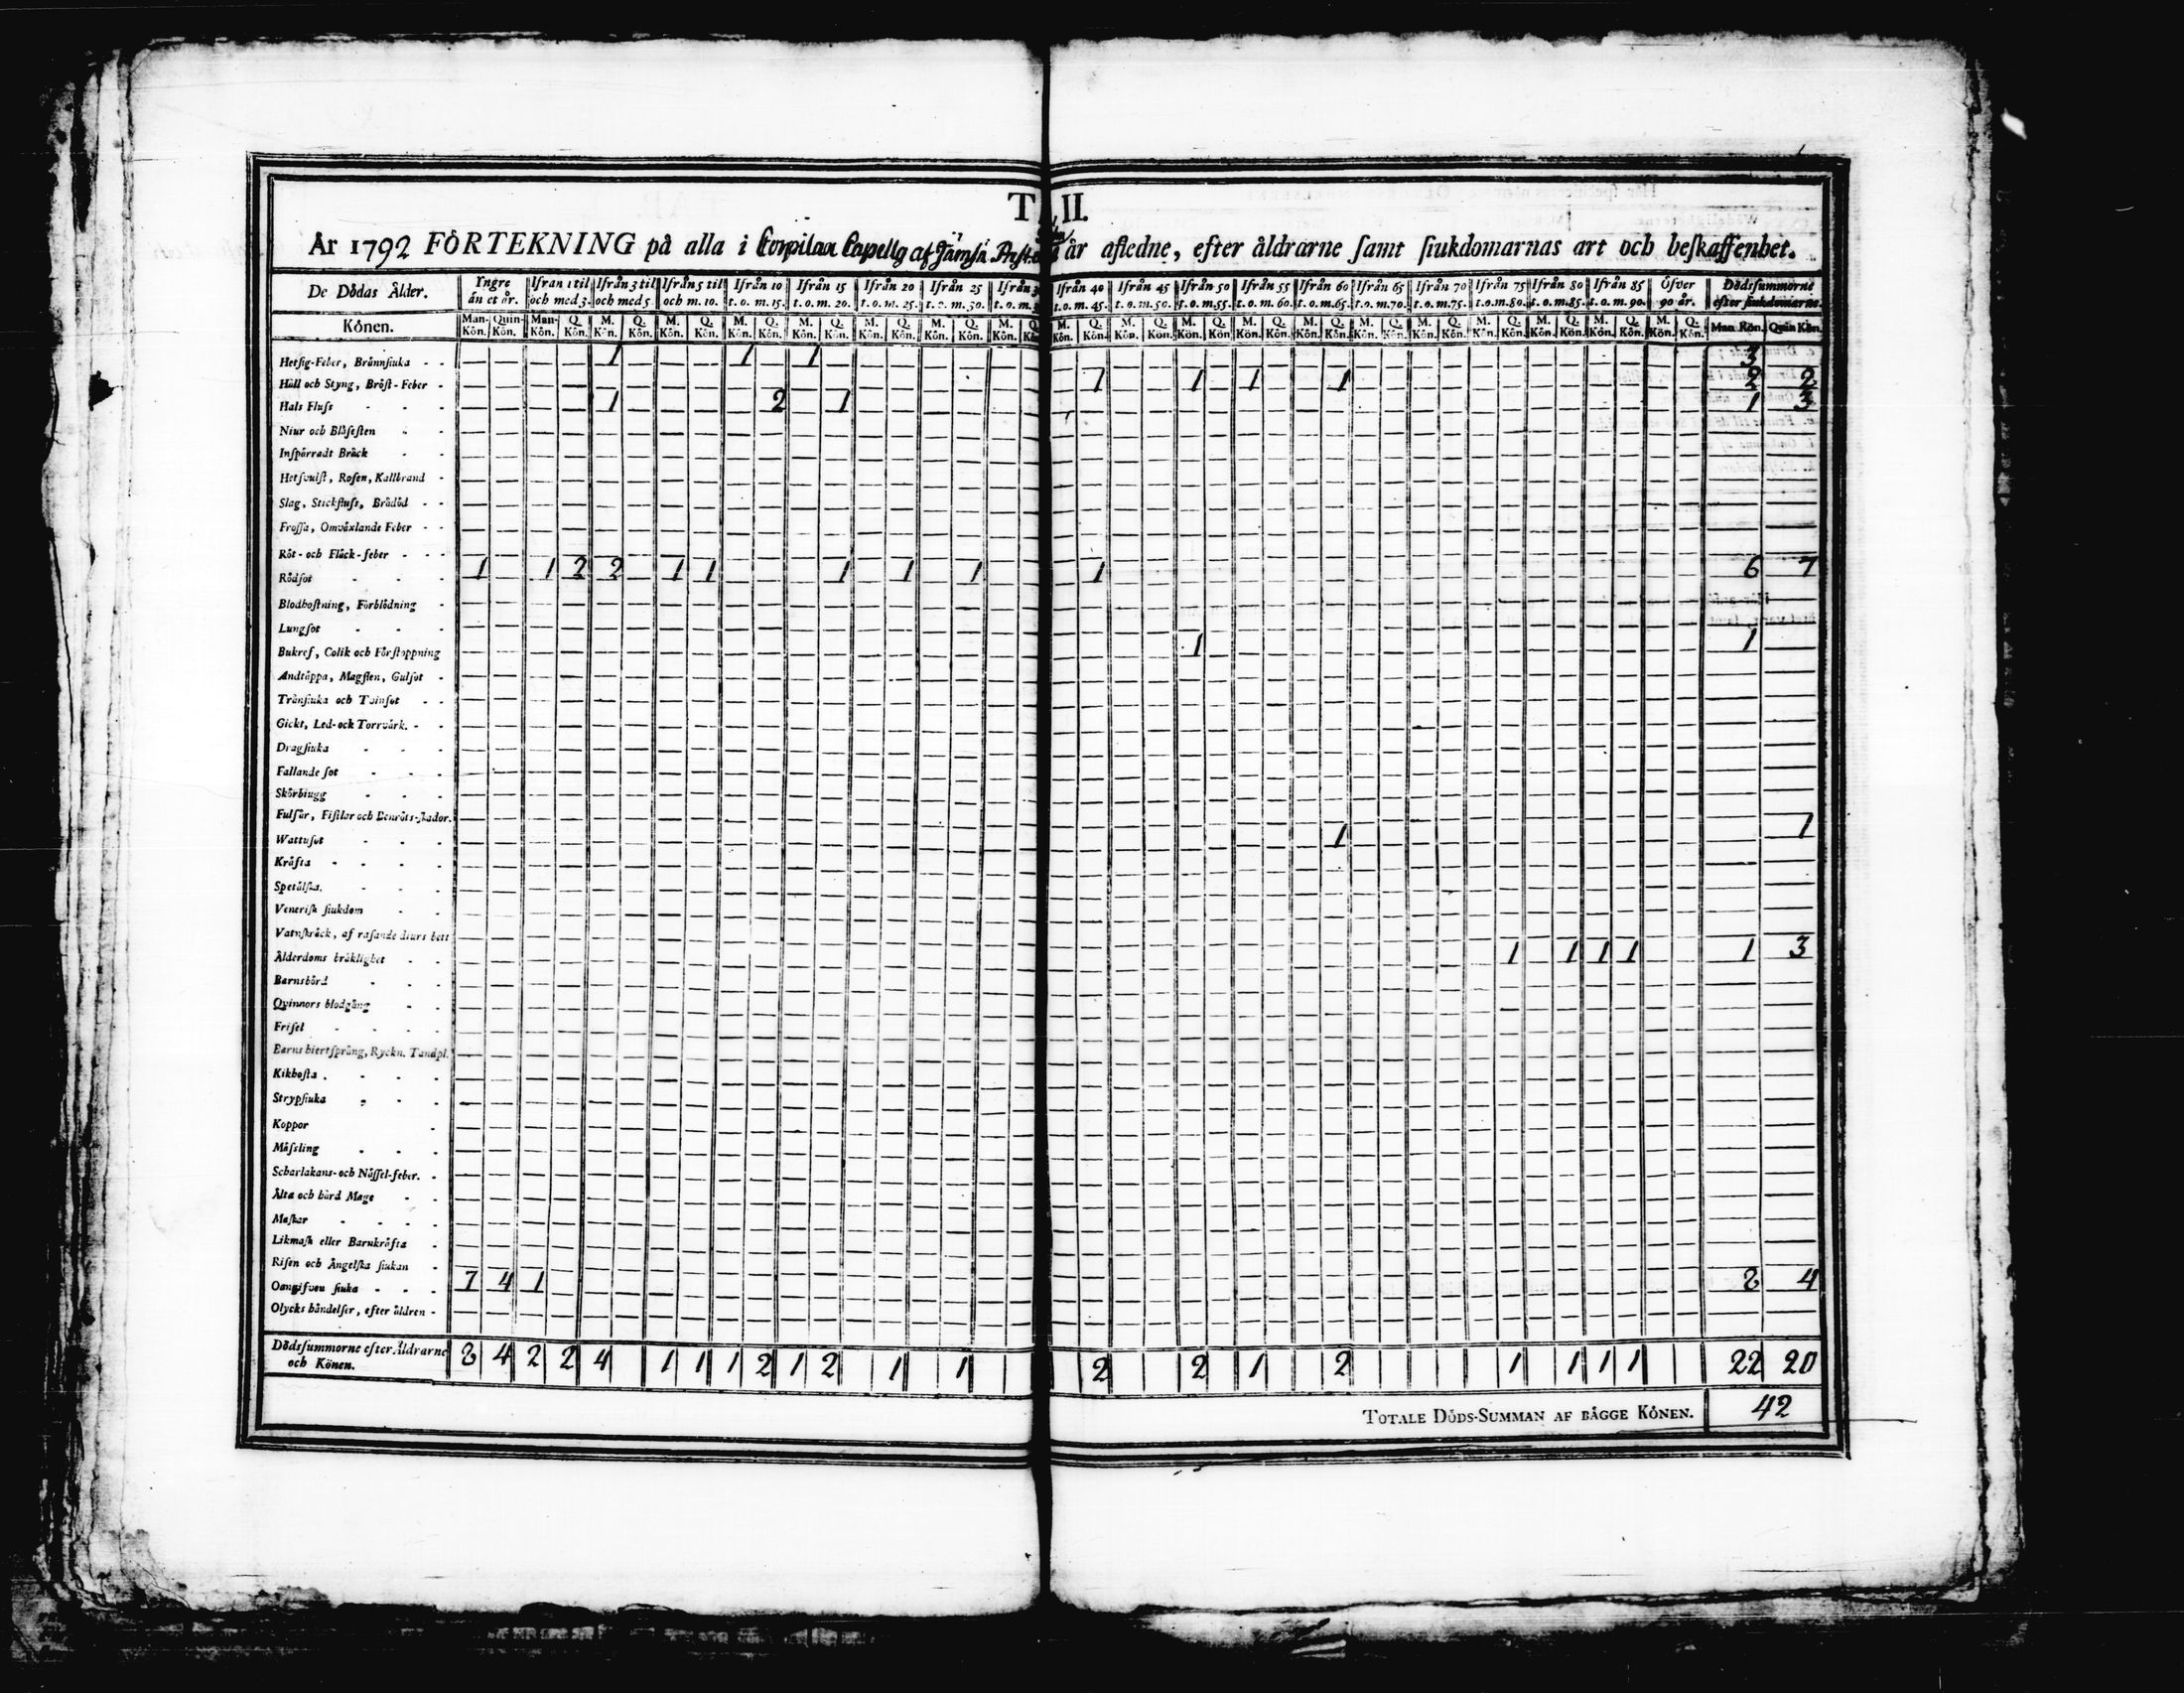 T II.
År 1792 FÖRTEKNING på alla i Corpilax Capellg af Jämsä år afledne, efter åldrarne samt siukdomarnas art och beskaffenhet.
De Dödas Ålder. Yngre än et år. Ifrån 1 til och med 3. Ifrån 3 til och med 5 Ifrån 5 til och m. 10. Ifrån 10 t. o. m. 15. Ifrån 15 t. o. m. 20. Ifrån 20 t. o. m. 25. Ifrån 25 t. o. m. 30. Ifrån 3 t. o. m. Ifrån 40 t. o. m. 45. Ifrån 45 t. o. m. 50. Ifrån 50 t. o. m. 55. Ifrån 55 t. o. m. 60. Ifrån 60 t. o. m. 65. Ifrån 65 t. o. m. 70. Ifrån 70 t. o. m. 75. Ifrån 75 t. o. m. 80. Ifrån 80 t. o. m. 85. Ifrån 85 t. o. m. 90. Öfver 90 år. Dödssummorne efter siukdomarne.
Könen. Man-Kön. Quin-Kön. Man-Kön. Q. Kön. M. Kön. Q. Kön. M. Kön. Q. Kön. M. Kön. Q. Kön. M. Kön. Q. Kön. M. Kön. Q. Kön. M. Kön. Q. Kön. M. Kön. Q. Kön. M. Kön. Q. Kön. M. Kön. Q. Kön. M. Kön. Q. Kön. M. Kön. Q. Kön. M. Kön. Q. Kön. M. Kön. Q. Kön. M. Kön. Q. Kön. M. Kön. Q. Kön. M. Kön. Q. Kön. M. Kön. Q. Kön. M. Kön. Q. Kön. Man Kön. Quin Kön.
Hetsig-Feber, Brännsiuka - - 1 1 1 3
Håll och Styng, Bröst-Feber - 1 1 1 1 2 2
Hals Fluss - - - 1 2 1 1 3
Niur och Blåsesten - -
Inspärradt Bråck - -
Hetsvulst, Rosen, Kallbrand -
Slag, Stickfluss, Brådöd - -
Frossa, Omväxlande Feber - -
Röt- och Fläck-feber - - -
Rödsot - - - 1 1 2 2 1 1 1 1 1 1 6 7
Blodhostning, Förblödning -
Lungsot - - -
Bukref, Colik och Förstoppning 1 1
Andtäppa, Magsten, Gulsot -
Trånsiuka och Tvinsot - -
Gickt, Led-ock Torrvärk. - -
Dragsiuka - - -
Fallande sot - - -
Skörbiugg - - -
Fulsår, Fistlar och Benröts-skador.
Wattusot - - - 1 1
Kräfta - - - -
Spetälska. - - -
Venerisk siukdom - -
Vatnskräck, af rasande diurs bett
Ålderdoms bräklighet - - 1 1 1 1 1 3
Barnsbörd - - -
Qvinnors blodgång - -
Frisel - - - -
Barns hiertsprång, Ryckn. Tandpl.
Kikhosta . - - -
Strypsiuka - - -
Koppor -
Mässling - - -
Scharlakans-och Nässel-feber. -
Älta och hård Mage - -
Maskar - - - -
Likmask eller Barnkräfta -
Risen och Ängelska siukan -
Oangifven siuka - - - 7 4 1 8 4
Olycks händelser, efter åldren -
Dödssummorne efter Åldrarne och Könen. 8 4 2 2 4 1 1 1 2 1 2 1 1 2 2 1 2 1 1 1 1 22 20
TOTALE DÖDS-SUMMAN AF BÄGGE KÖNEN. 42